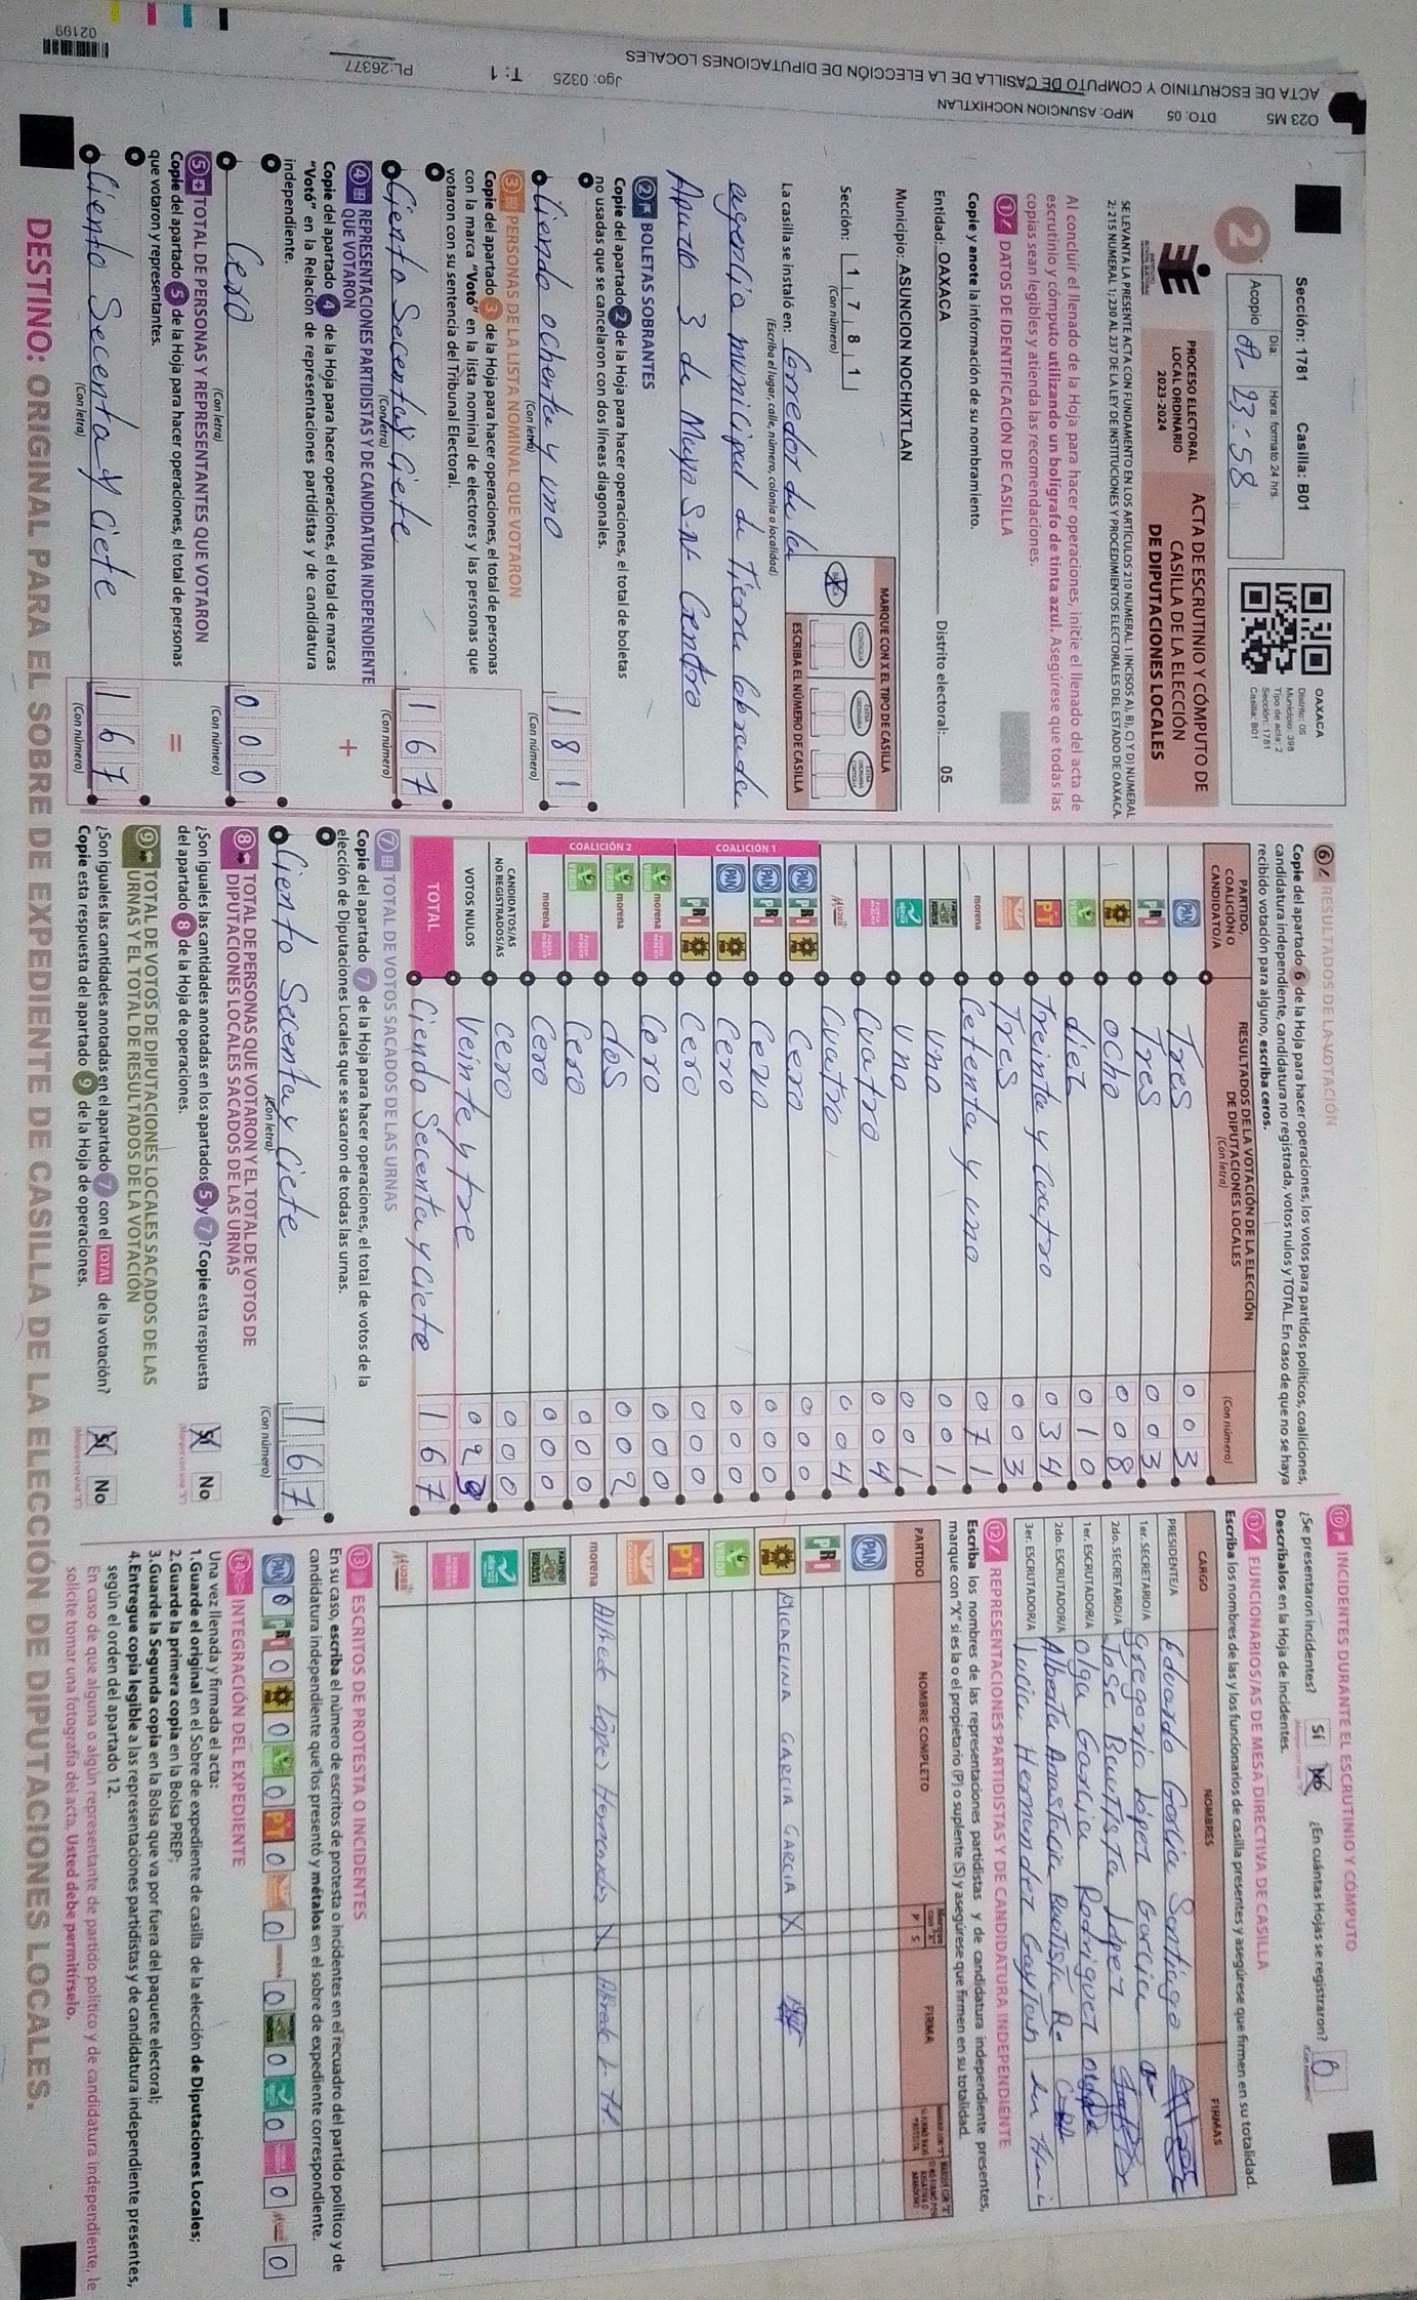 Sección: 1781 Casilla: B01
2
Acopio
Día: Hora: formato 24 hrs.
02 23:58
OAXACA
Distrito: 05
Municipio: 398
Tipo de acta: 2
Sección: 1781
Casilla: B01
PROCESO ELECTORAL
LOCAL ORDINARIO
2023-2024
ACTA DE ESCRUTINIO Y CÓMPUTO DE
CASILLA DE LA ELECCIÓN
DE DIPUTACIONES LOCALES
SE LEVANTA LA PRESENTE ACTA CON FUNDAMENTO EN LOS ARTÍCULOS 210 NUMERAL 1 INCISOS A), B), C) Y D) NUMERAL
2; 215 NUMERAL 1; 230 AL 237 DE LA LEY DE INSTITUCIONES Y PROCEDIMIENTOS ELECTORALES DEL ESTADO DE OAXACA.
Al concluir el llenado de la Hoja para hacer operaciones, inicie el llenado del acta de
escrutinio y cómputo utilizando un bolígrafo de tinta azul. Asegúrese que todas las
copias sean legibles y atienda las recomendaciones.
1 DATOS DE IDENTIFICACIÓN DE CASILLA
Copie y anote la información de su nombramiento.
Entidad: OAXACA Distrito electoral: 05
Municipio: ASUNCION NOCHIXTLAN
Sección: 1 7 8 1
(Con número)
MARQUE CON X EL TIPO DE CASILLA
ESCRIBA EL NÚMERO DE CASILLA
La casilla se instaló en: Corredor de la
(Escriba el lugar, calle, número, colonia o localidad)
agencia municipal de Tierra Colorada
Apuzto 3 de Mayo S-N Centro
2 BOLETAS SOBRANTES
Copie del apartado 2 de la Hoja para hacer operaciones, el total de boletas
no usadas que se cancelaron con dos líneas diagonales.
Ciendo ochenta y uno 1 8 1
(Con letra) (Con número)
3 PERSONAS DE LA LISTA NOMINAL QUE VOTARON
Copie del apartado 3 de la Hoja para hacer operaciones, el total de personas
con la marca "Votó" en la lista nominal de electores y las personas que
votaron con su sentencia del Tribunal Electoral.
Ciento Secenta y Ciete 1 6 7
(Con letra) (Con número)
4 REPRESENTACIONES PARTIDISTAS Y DE CANDIDATURA INDEPENDIENTE
QUE VOTARON
+
Copie del apartado 4 de la Hoja para hacer operaciones, el total de marcas
"Votó" en la Relación de representaciones partidistas y de candidatura
independiente.
Cero 0 0 0
(Con letra) (Con número)
5 TOTAL DE PERSONAS Y REPRESENTANTES QUE VOTARON
=
Copie del apartado 5 de la Hoja para hacer operaciones, el total de personas
que votaron y representantes.
Ciento Secenta y Ciete 1 6 7
(Con letra) (Con número)
6 RESULTADOS DE LA VOTACIÓN
Copie del apartado 6 de la Hoja para hacer operaciones, los votos para partidos políticos, coaliciones,
candidatura independiente, candidatura no registrada, votos nulos y TOTAL. En caso de que no se haya
recibido votación para alguno, escriba ceros.
PARTIDO,
COALICIÓN O
CANDIDATO/A
RESULTADOS DE LA VOTACIÓN DE LA ELECCIÓN
DE DIPUTACIONES LOCALES
(Con letra)
(Con número)
PAN Tres 0 0 3
PRI Tres 0 0 3
PRD ocho 0 0 8
VERDE diez 0 1 0
PT Treinta y Cuatro 0 3 4
Tres 0 0 3
morena Cetenta y uno 0 7 1
Uno 0 0 1
Uno 0 0 1
Cuatro 0 0 4
Cuatro 0 0 4
COALICIÓN 1
PAN PRI PRD Cero 0 0 0
PAN PRI Cero 0 0 0
PAN PRD Cero 0 0 0
PRI PRD Cero 0 0 0
COALICIÓN 2
VERDE morena Cero 0 0 0
VERDE morena dos 0 0 2
VERDE Cero 0 0 0
morena Cero 0 0 0
CANDIDATOS/AS
NO REGISTRADOS/AS Cero 0 0 0
VOTOS NULOS Veinte y tre 0 2 3
TOTAL Ciendo Secenta y Ciete 1 6 7
7 TOTAL DE VOTOS SACADOS DE LAS URNAS
Copie del apartado 7 de la Hoja para hacer operaciones, el total de votos de la
elección de Diputaciones Locales que se sacaron de todas las urnas.
Ciento Secenta y Ciete 1 6 7
(Con letra) (Con número)
8 TOTAL DE PERSONAS QUE VOTARON Y EL TOTAL DE VOTOS DE
DIPUTACIONES LOCALES SACADOS DE LAS URNAS
¿Son iguales las cantidades anotadas en los apartados 5 y 7? Copie esta respuesta
del apartado 8 de la Hoja de operaciones.
Sí No
9 TOTAL DE VOTOS DE DIPUTACIONES LOCALES SACADOS DE LAS
URNAS Y EL TOTAL DE RESULTADOS DE LA VOTACIÓN
¿Son iguales las cantidades anotadas en el apartado 7 con el TOTAL de la votación?
Copie esta respuesta del apartado 9 de la Hoja de operaciones.
Sí No
10 INCIDENTES DURANTE EL ESCRUTINIO Y CÓMPUTO
¿Se presentaron incidentes? Sí No ¿En cuántas Hojas se registraron? 0
Descríbalos en la Hoja de incidentes.
11 FUNCIONARIOS/AS DE MESA DIRECTIVA DE CASILLA
Escriba los nombres de las y los funcionarios de casilla presentes y asegúrese que firmen en su totalidad.
CARGO NOMBRES FIRMAS
PRESIDENTE/A Eduardo Garcia Santiago
1er. SECRETARIO/A gregorio López Garcia
2do. SECRETARIO/A Jose Bautista López
1er. ESCRUTADOR/A olga Garcia Rodriguez
2do. ESCRUTADOR/A Alberta Anastacia Bautista Re
3er. ESCRUTADOR/A lucia Hernandez Gaytan
12 REPRESENTACIONES PARTIDISTAS Y DE CANDIDATURA INDEPENDIENTE
Escriba los nombres de las representaciones partidistas y de candidatura independiente presentes,
marque con "X" si es la o el propietario (P) o suplente (S) y asegúrese que firmen en su totalidad.
PARTIDO NOMBRE COMPLETO P S FIRMA
PAN
PRI
PRD MICAELINA GARCIA GARCIA X
VERDE
PT
morena Alfredo López Hernandez X
13 ESCRITOS DE PROTESTA O INCIDENTES
En su caso, escriba el número de escritos de protesta o incidentes en el recuadro del partido político y de
candidatura independiente que los presentó y métalos en el sobre de expediente correspondiente.
PAN 0 PRI 0 PRD 0 VERDE 0 PT 0 0 morena 0 0 0 0 0
14 INTEGRACIÓN DEL EXPEDIENTE
Una vez llenada y firmada el acta:
1.Guarde el original en el Sobre de expediente de casilla de la elección de Diputaciones Locales;
2.Guarde la primera copia en la Bolsa PREP;
3.Guarde la Segunda copia en la Bolsa que va por fuera del paquete electoral;
4.Entregue copia legible a las representaciones partidistas y de candidatura independiente presentes,
según el orden del apartado 12.
En caso de que alguna o algún representante de partido político y de candidatura independiente, le
solicite tomar una fotografía del acta, Usted debe permitírselo.
DESTINO: ORIGINAL PARA EL SOBRE DE EXPEDIENTE DE CASILLA DE LA ELECCIÓN DE DIPUTACIONES LOCALES.
O23 M5 DTO: 05 MPO: ASUNCION NOCHIXTLAN
ACTA DE ESCRUTINIO Y COMPUTO DE CASILLA DE LA ELECCIÓN DE DIPUTACIONES LOCALES
Jgo: 0325 T: 1 PL:26377
02199